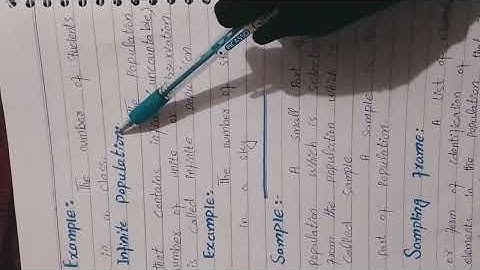 Example:
The number of students
in a class.
Infinite Population:
The population
that contains uncountable)
number of units or observation
is called infinite population
Example:
The number of
in a sky
Sample:
A small part of
population which is
from the population
called sample
A Sample is
part of population.
Sampling Frame:
A list
or form of identification of
elements in the